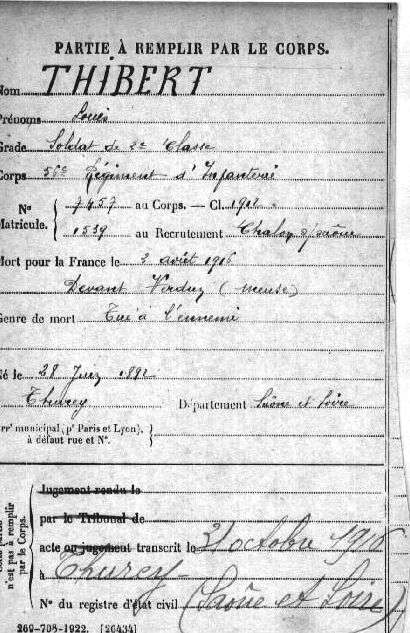 PARTIE À REMPLIR PAR LE CORPS.
Nom THIBERT
Prénoms Louis
Grade Soldat de 2e Classe
Corps 56e Régiment d'Infanterie
No 7457 au Corps. — Cl. 1912
Matricule. 1539 au Recrutement Chalon s/saône
Mort pour la France le 3 août 1916
Devant Verdun (meuse)
Genre de mort Tué à l'ennemi
Né le 28 1892
Thurey Département Saône et Loire
Arrt municipal (pr Paris et Lyon),
à défaut rue et No.
n'est pas à remplir
par le Corps.
Jugement rendu le
par le Tribunal de
acte ou jugement transcrit le 31 octobre 1916
à Thurey
No du registre d'état civil (Saône et Loire)
269-708-1922. [26434]